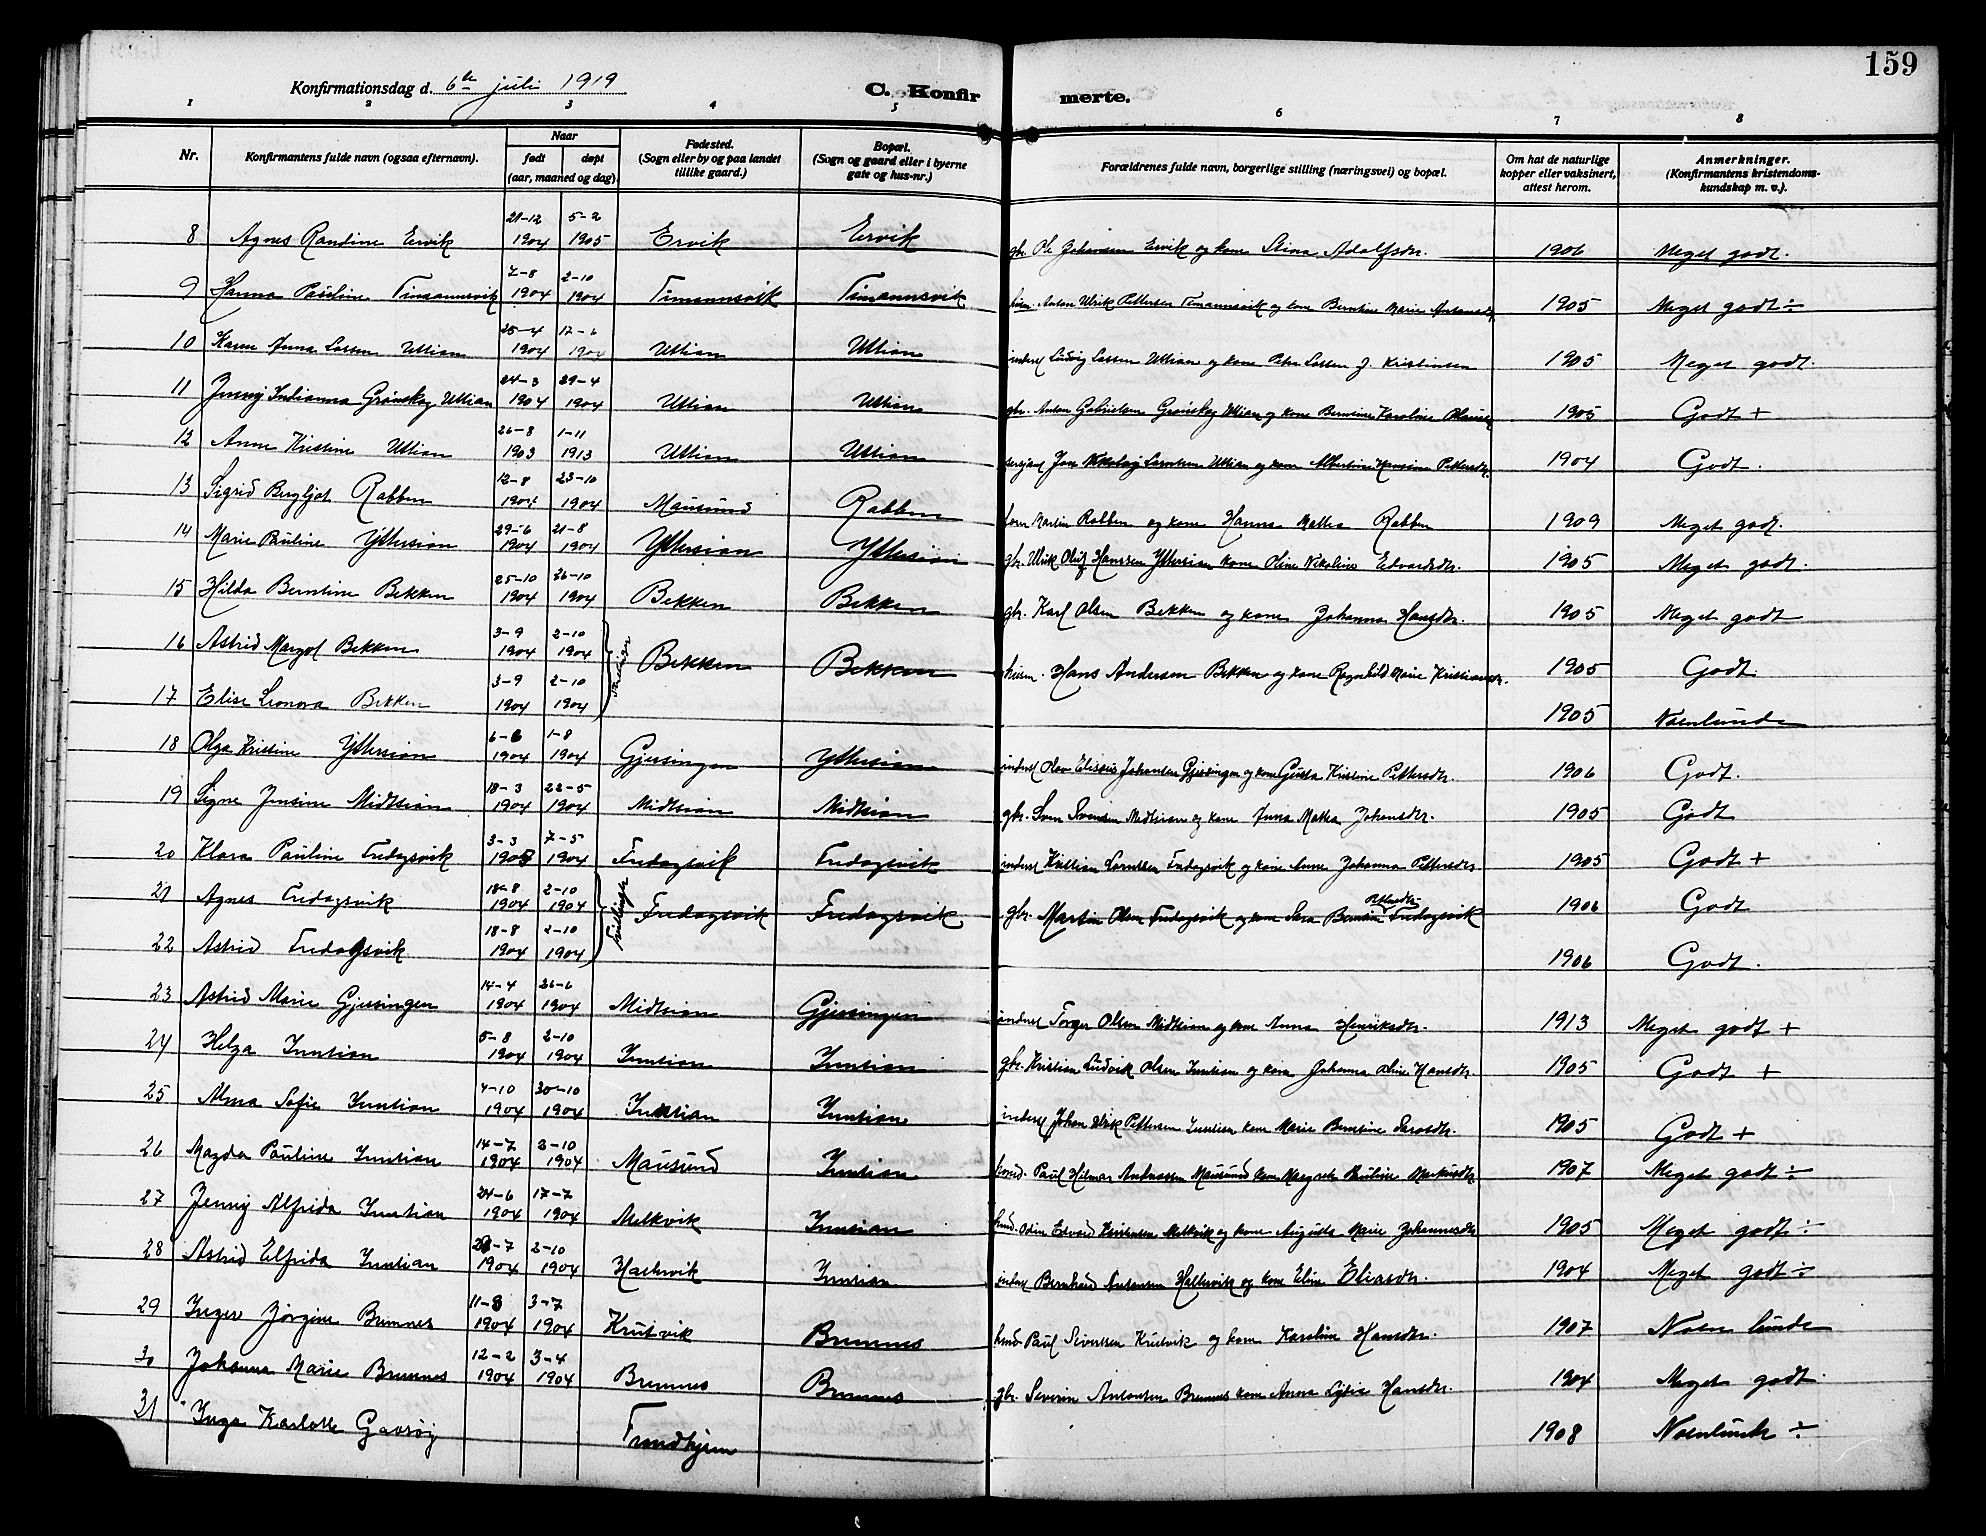 159
Konfirmationsdag d. 6te juli 1919 C. Konfirmerte.
1 2 3 4 5 6 7 8
Nr. Konfirmantens fulde navn (ogsaa efternavn). Naar født døpt (aar, maaned og dag). Fødested. (Sogn eller by og paa landet tillike gaard.) Bopæl. (Sogn og gaard eller i byerne gate og hus-nr.) Forældrenes fulde navn, borgerlige stilling (næringsvei) og bopæl. Om hat de naturlige kopper eller vaksinert, attest herom. Anmerkninger. (Konfirmantens kristendomskundskap m. v.).
8 Agnes Randine Ervik 21-12 1904 5-2 1905 Ervik Ervik gbr. Ole Johansen Ervik og kone Stina Adolfsdtr. 1906 Meget godt.
9 Hanna Pauline Timannsvik 7-8 1904 2-10 1904 Timannsvik Timannsvik Anton Ulrik Pettersen Timannsvik og kone Berntine Marie 1905 Meget godt ÷
10 Karen Anna Lassen Uttian 25-4 1904 17-6 1904 Uttian Uttian inderst Ludvig Lassen Uttian og kone Petra Lassen f. Kristensen 1905 Meget godt.
11 Jenny Indianna Grønskag Uttian 24-3 1904 29-4 1904 Uttian Uttian gbr. Anton Gabrielsen Grønskag Uttian og kone Berntine Karoline 1905 Godt +
12 Anne Kristine Uttian 26-8 1903 1-11 1913 Uttian Uttian Jon Nikolaj Uttian og kone Albertine Hansine Pettersdtr. 1904 Godt.
13 Sigrid Bergljot Rabben 12-8 1904 23-10 1904 Mausund Rabben Martin Rabben og kone Hanna Mathea Rabben 1909 Meget godt.
14 Marie Pauline Yttersian 29-6 1904 21-8 1904 Yttersian Yttersian gbr. Ulrik Oluf Hanssen Yttersian kone Oline Nikoline Edvardsdtr. 1905 Meget godt.
15 Hilda Berntine Bekken 25-10 1904 26-10 1904 Bekken Bekken gbr. Karl Olsen Bekken og kone Johanna Hansdtr. 1905 Meget godt
16 Astrid Margot Bekken 3-9 1904 2-10 1904 Bekken Bekken husm. Hans Andersen Bekken og kone Ragnhild Marie Kristiansdtr. 1905 Godt.
17 Elise Leonora Bekken 3-9 1904 2-10 1904 1905 Noenlunde
18 Olga Kristine Yttersian 6-6 1904 1-8 1904 Gjessingen Yttersian inderst Olav Elissius Johansen Gjessingen og kone Gusta Kristine Pettersdtr. 1906 Godt.
19 Signe Jensine Midtsian 18-3 1904 22-5 1904 Midtsian Midtsian gbr. Sven Svensen Midtsian og kone Anna Mathea Johansdtr. 1905 Godt
20 Klara Pauline Fredagsvik 3-3 1903 7-5 1904 Fredagsvik Fredagsvik inderst Kristian Lorntsen Fredagsvik og kone Anne Johanna Pettersdtr 1905 Godt +
21 Agnes Fredagsvik 18-8 1904 2-10 1904 tvillinger Fredagsvik Fredagsvik gbr. Martin Olsen Fredagsvik og kone Sara Berntine Fredagsvik 1906 Godt
22 Astrid Fredagsvik 18-8 1904 2-10 1904 1906 Godt.
23 Astrid Marie Gjessingen 14-4 1904 26-6 1904 Midtsian Gjessingen inderst Torger Olsen Midtsian og kone Anna Henriksdtr. 1913 Meget godt +
24 Helga Inntian 5-8 1904 2-10 1904 Inntian Inntian gbr. Kristian Ludvik Olsen Inntian og kone Johanna Oline Hansdtr. 1905 Godt +
25 Alma Sofie Inntian 4-10 1904 30-10 1904 Inntian Inntian inderst Johan Ulrik Pettersen Inntian kone Marie Berntine 1905 Godt +
26 Magda Pauline Inntian 14-7 1904 2-10 1904 Mausund Inntian Paul Hilmar Andreassen Mausund kone Margrete Pauline Markusdtr 1907 Meget godt ÷
27 Jenny Alfrida Inntian 24-6 1904 17-7 1904 Melkvik Inntian Odin Edvard Kristensen Melkvik og kone Augusta Marie Johannesdtr 1905 Meget godt ÷
28 Astrid Elfrida Inntian 28-7 1904 2-10 1904 Inntian inderst Bernhard og kone Eline Eliasdtr. 1904 Meget godt ÷
29 Inger Jørgine Bremnes 11-3 1904 3-7 1904 Krutvik Bremnes Paul Sivertsen Krutvik og kone Karoline Hansdtr. 1907 Noenlunde
30 Johanna Marie Bremnes 12-2 1904 3-4 1904 Bremnes Bremnes gbr. Severin Antonsen Bremnes kone Anna Lysia Hansdtr. 1904 Meget godt.
31 Inga Karlotte Garsøy Trondhjem 1908 Noenlunde ÷